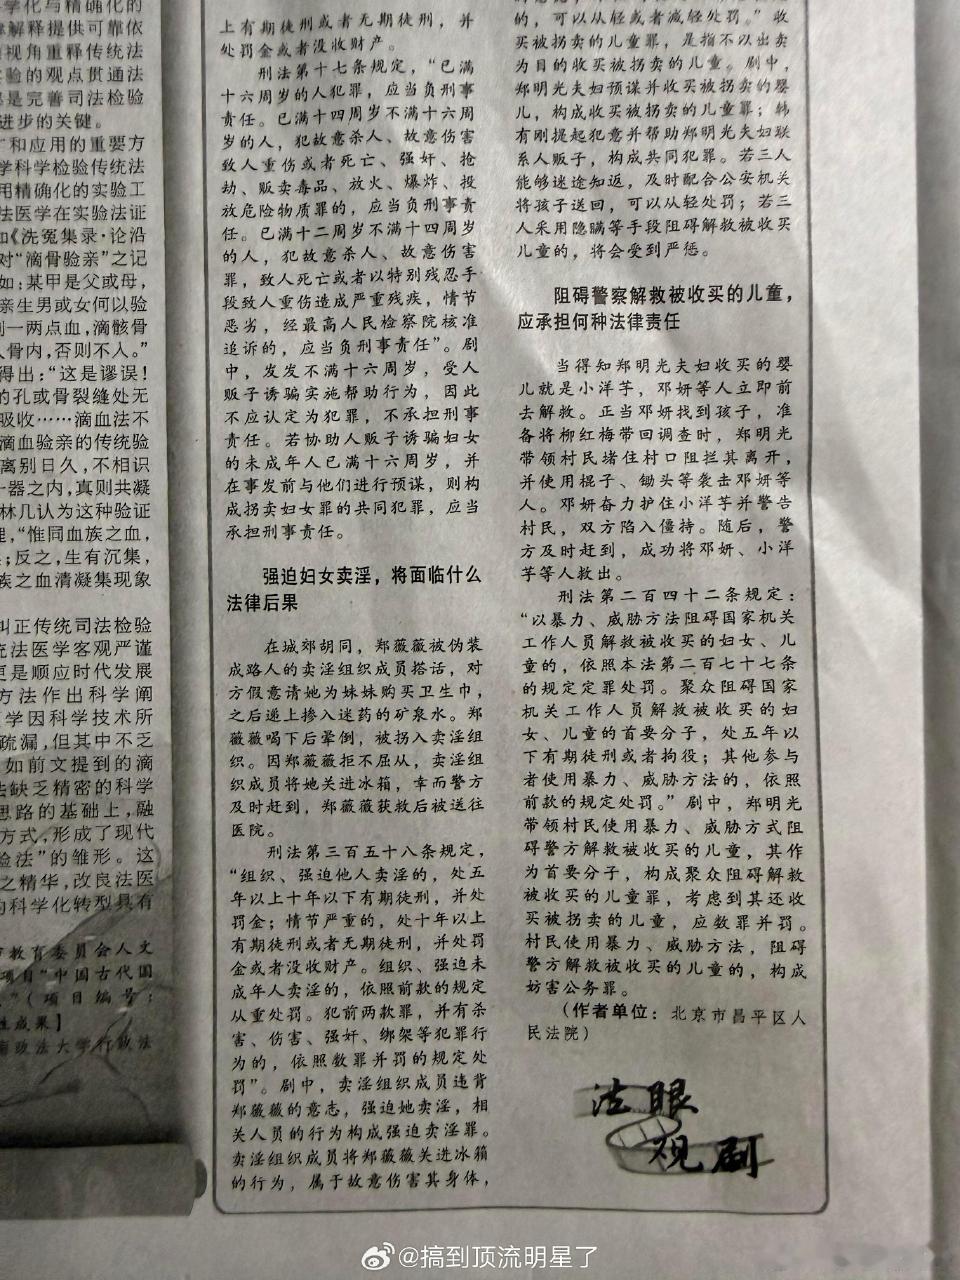 学化与精确化的
律解释提供可靠依
的视角重释传统法
实验的观点贯通法
都是完善司法检验
进步的关键。
扩和应用的重要方
学科学检验传统法
用精确化的实验工
法医学在实验法证
如《洗冤集录·论沿
对“滴骨验亲”之记
如：某甲是父或母，
亲生男或女何以验
刺一两点血，滴骸骨
入骨内，否则不入。”
得出：“这是谬误！
的孔或骨裂缝处无
吸收……滴血法不
滴血验亲的传统验
离别日久，不相识
一器之内，真则共凝
林几认为这种验证
理，“惟同血族之血，
；反之，生有沉集，
族之血清凝集现象
纠正传统司法检验
统法医学客观严谨
更是顺应时代发展
方法作出科学阐
医学因科学技术所
疏漏，但其中不乏
如前文提到的滴
法缺乏精密的科学
思路的基础上，融
方式，形成了现代
验法”的雏形。这
之精华，改良法医
的科学化转型具有
市教育委员会人文
项目“中国古代国
”（项目编号：
性成果】
南政法大学行政法
上有期徒刑或者无期徒刑，并
处罚金或者没收财产。
刑法第十七条规定，“已满
十六周岁的人犯罪，应当负刑事
责任。已满十四周岁不满十六周
岁的人，犯故意杀人、故意伤害
致人重伤或者死亡、强奸、抢
劫、贩卖毒品、放火、爆炸、投
放危险物质罪的，应当负刑事责
任。已满十二周岁不满十四周岁
的人，犯故意杀人、故意伤害
罪，致人死亡或者以特别残忍手
段致人重伤造成严重残疾，情节
恶劣，经最高人民检察院核准
追诉的，应当负刑事责任”。剧
中，发发不满十六周岁，受人
贩子诱骗实施帮助行为，因此
不应认定为犯罪，不承担刑事
责任。若协助人贩子诱骗妇女
的未成年人已满十六周岁，并
在事发前与他们进行预谋，则构
成拐卖妇女罪的共同犯罪，应当
承担刑事责任。
强迫妇女卖淫，将面临什么
法律后果
在城郊胡同，郑薇薇被伪装
成路人的卖淫组织成员搭话，对
方假意请她为妹妹购买卫生巾，
之后递上掺入迷药的矿泉水。郑
薇薇喝下后晕倒，被拐入卖淫组
织。因郑薇薇拒不屈从，卖淫组
织成员将她关进冰箱，幸而警方
及时赶到，郑薇薇获救后被送往
医院。
刑法第三百五十八条规定，
“组织、强迫他人卖淫的，处五
年以上十年以下有期徒刑，并处
罚金；情节严重的，处十年以上
有期徒刑或者无期徒刑，并处罚
金或者没收财产。组织、强迫未
成年人卖淫的，依照前款的规定
从重处罚。犯前两款罪，并有杀
害、伤害、强奸、绑架等犯罪行
为的，依照数罪并罚的规定处
罚”。剧中，卖淫组织成员违背
郑薇薇的意志，强迫她卖淫，相
关人员的行为构成强迫卖淫罪。
卖淫组织成员将郑薇薇关进冰箱
的行为，属于故意伤害其身体，
的，可以从轻或者减轻处罚。”收
买被拐卖的儿童罪，是指不以出卖
为目的收买被拐卖的儿童。剧中，
郑明光夫妇预谋并收买被拐卖的婴
儿，构成收买被拐卖的儿童罪；韩
有刚提起犯意并帮助郑明光夫妇联
系人贩子，构成共同犯罪。若三人
能够迷途知返，及时配合公安机关
将孩子送回，可以从轻处罚；若三
人采用隐瞒等手段阻碍解救被收买
儿童的，将会受到严惩。
阻碍警察解救被收买的儿童，
应承担何种法律责任
当得知郑明光夫妇收买的婴
儿就是小洋芋，邓妍等人立即前
去解救。正当邓妍找到孩子，准
备将柳红梅带回调查时，郑明光
带领村民堵住村口阻拦其离开，
并使用棍子、锄头等袭击邓妍等
人。邓妍奋力护住小洋芋并警告
村民，双方陷入僵持。随后，警
方及时赶到，成功将邓妍、小洋
芋等人救出。
刑法第二百四十二条规定：
“以暴力、威胁方法阻碍国家机关
工作人员解救被收买的妇女、儿
童的，依照本法第二百七十七条
的规定定罪处罚。聚众阻碍国家
机关工作人员解救被收买的妇
女、儿童的首要分子，处五年以
下有期徒刑或者拘役；其他参与
者使用暴力、威胁方法的，依照
前款的规定处罚。”剧中，郑明光
带领村民使用暴力、威胁方式阻
碍警方解救被收买的儿童，其作
为首要分子，构成聚众阻碍解救
被收买的儿童罪，考虑到其还收
买被拐卖的儿童，应数罪并罚。
村民使用暴力、威胁方法，阻碍
警方解救被收买的儿童的，构成
妨害公务罪。
（作者单位：北京市昌平区人
民法院）
法眼
观剧
@搞到顶流明星了